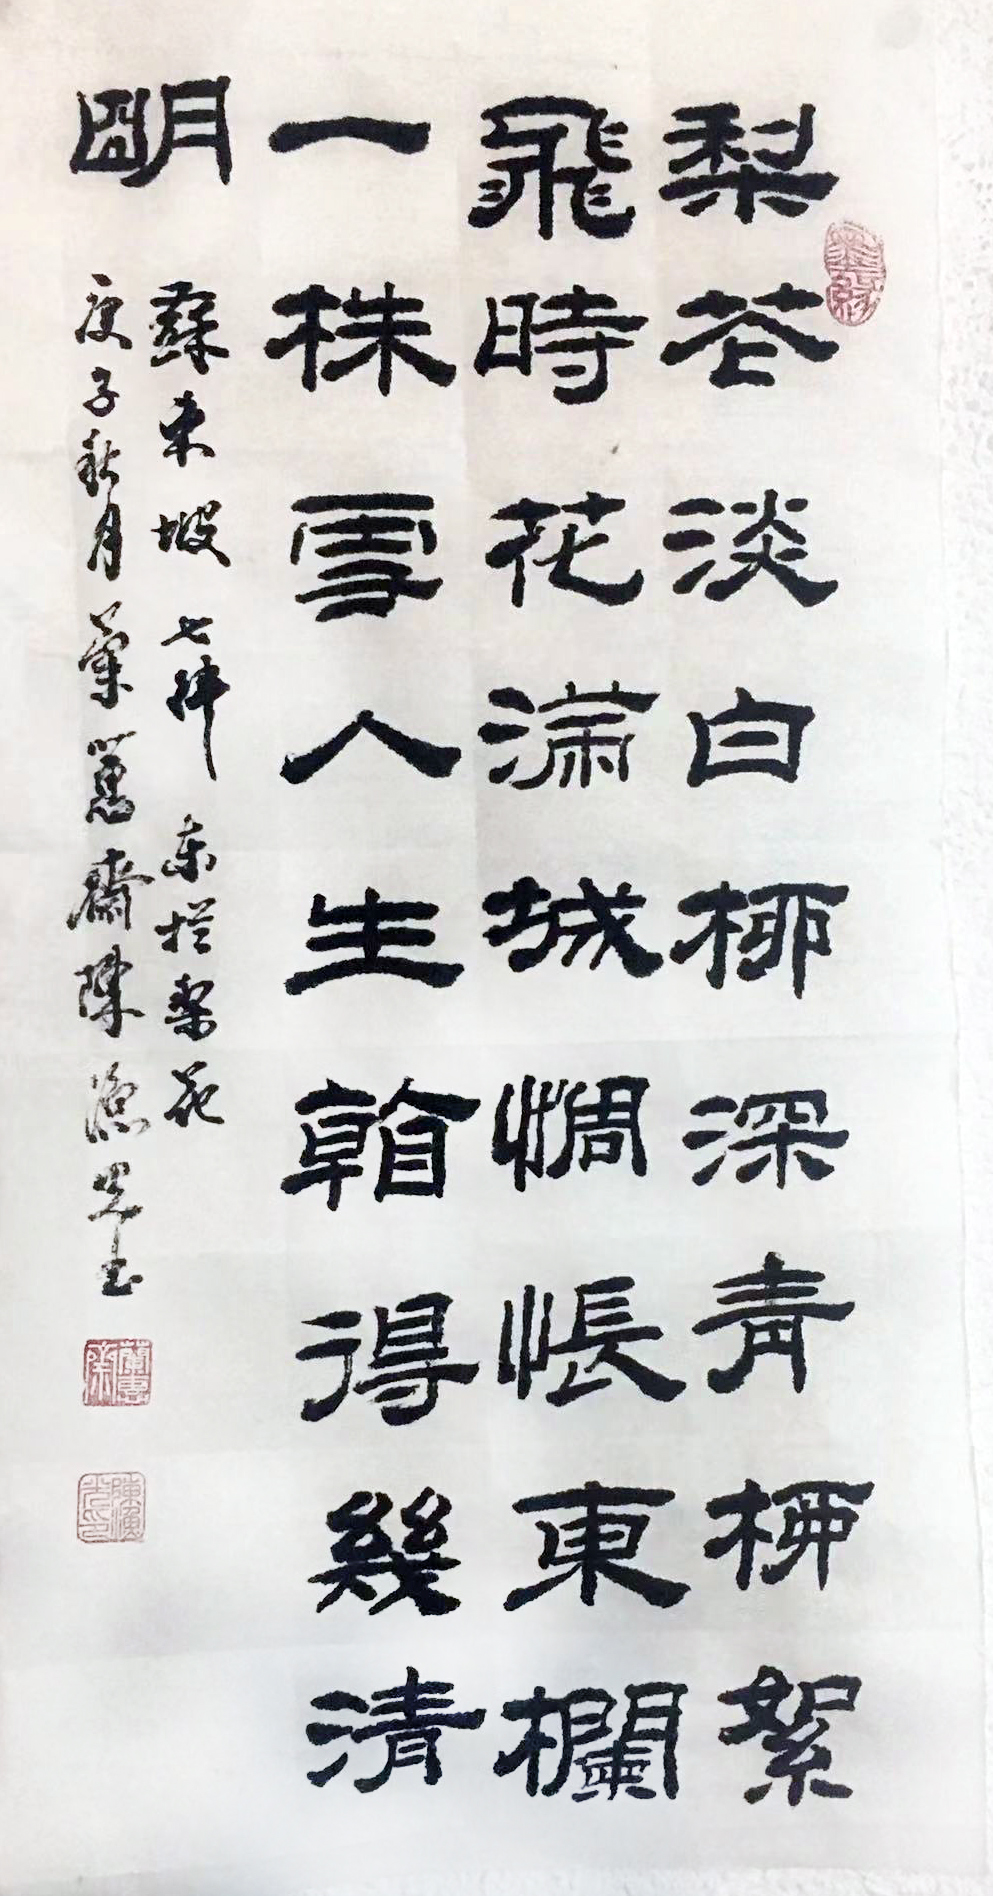 梨花淡白柳深青柳絮
飛時花滿城惆悵東欄
一株雪人生看得幾清
明
蘇東坡七律东栏梨花
庚子秋月蘭蕙齋陳漁光书